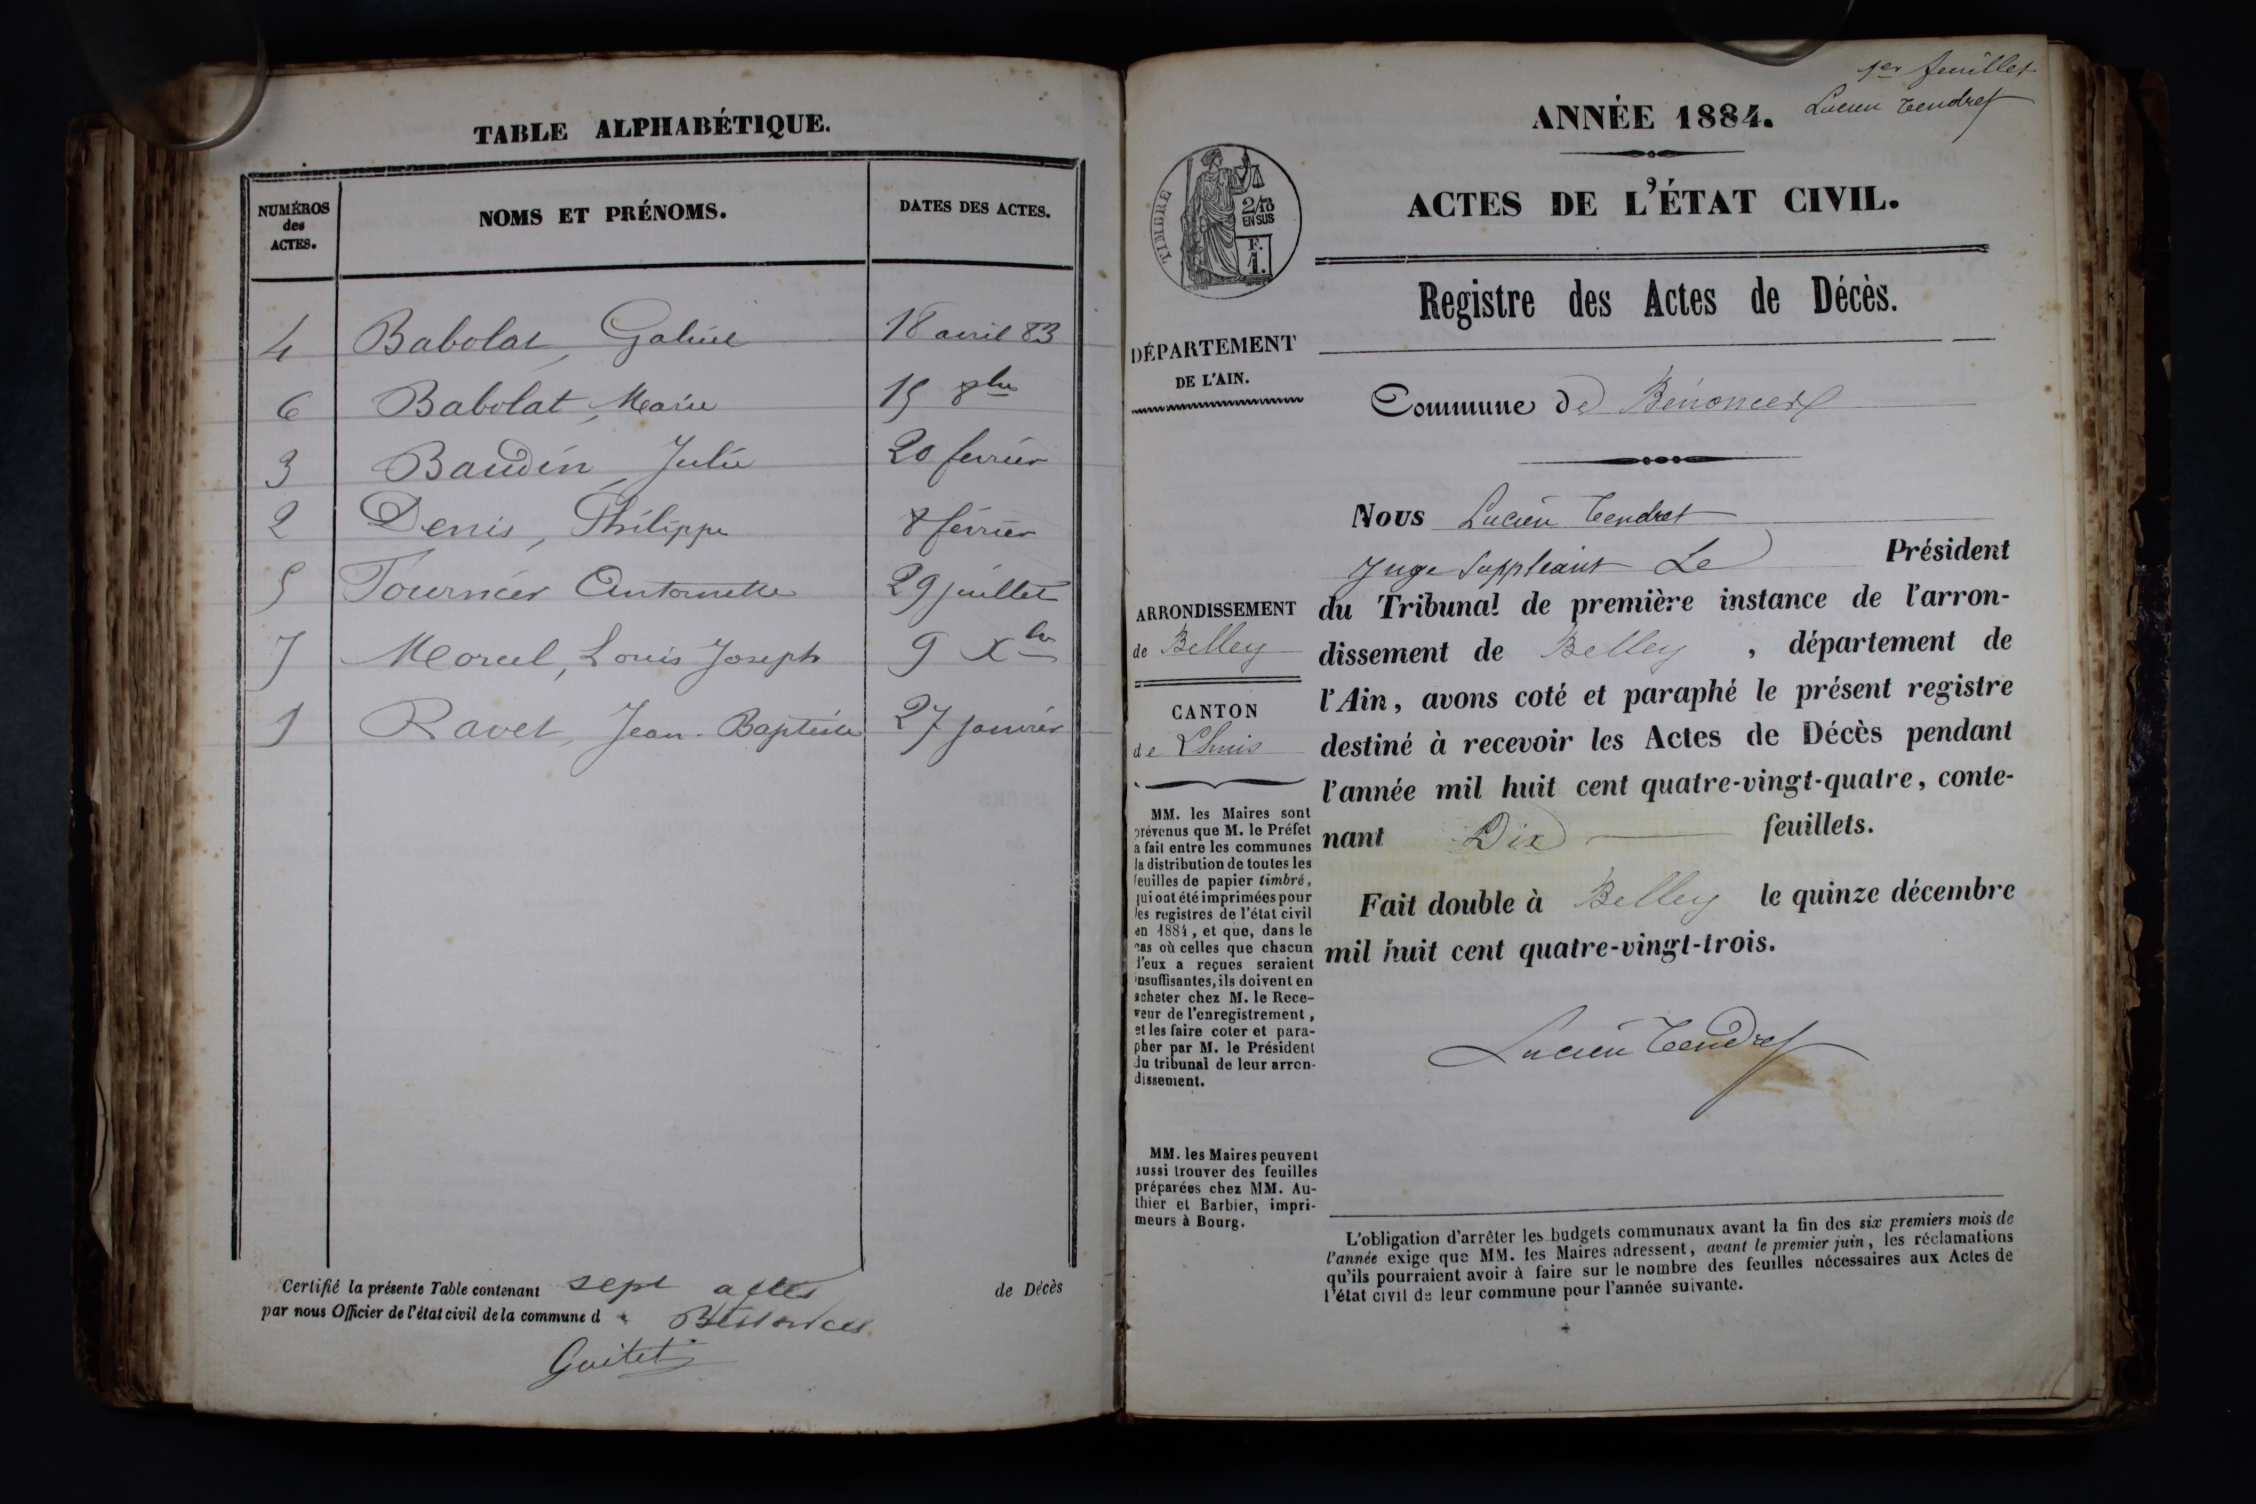 TABLE ALPHABÉTIQUE.
NUMÉROS des ACTES.
NOMS ET PRÉNOMS.
DATES DES ACTES.
4 Babolat, Gabriel 18 avril 83
6 Babolat, Marie 15 8bre
3 Baudin, Julie 20 février
2 Denis, Philippe 8 février
5 Tournier Antoinette 29 juillet
7 Morel, Louis Joseph 9 Xbre
1 Ravet, Jean-Baptiste 27 janvier
Certifié la présente Table contenant sept actes de Décès
par nous Officier de l'état civil de la commune d Bénonces
Guitet
1er feuillet
Lucien Tendret
ANNÉE 1884.
ACTES DE L'ÉTAT CIVIL.
TIMBRE
2/10
EN SUS
F.
1.
Registre des Actes de Décès.
DÉPARTEMENT
DE L'AIN.
Commune de Bénonces
Nous Lucien Tendret
Juge Suppléant Le Président
du Tribunal de première instance de l'arron-
dissement de Belley, département de
l'Ain, avons coté et paraphé le présent registre
destiné à recevoir les Actes de Décès pendant
l'année mil huit cent quatre-vingt-quatre, conte-
nant Dix feuillets.
Fait double à Belley le quinze décembre
mil huit cent quatre-vingt-trois.
Lucien Tendret
ARRONDISSEMENT
de Belley
CANTON
de Lhuis
MM. les Maires sont
prévenus que M. le Préfet
a fait entre les communes
la distribution de toutes les
feuilles de papier timbré,
qui ont été imprimées pour
les registres de l'état civil
en 1884, et que, dans le
cas où celles que chacun
d'eux a reçues seraient
insuffisantes, ils doivent en
acheter chez M. le Rece-
veur de l'enregistrement,
et les faire coter et para-
pher par M. le Président
du tribunal de leur arron-
dissement.
MM. les Maires peuvent
aussi trouver des feuilles
préparées chez MM. Au-
thier et Barbier, impri-
meurs à Bourg.
L'obligation d'arrêter les budgets communaux avant la fin des six premiers mois de
l'année exige que MM. les Maires adressent, avant le premier juin, les réclamations
qu'ils pourraient avoir à faire sur le nombre des feuilles nécessaires aux Actes de
l'état civil de leur commune pour l'année suivante.